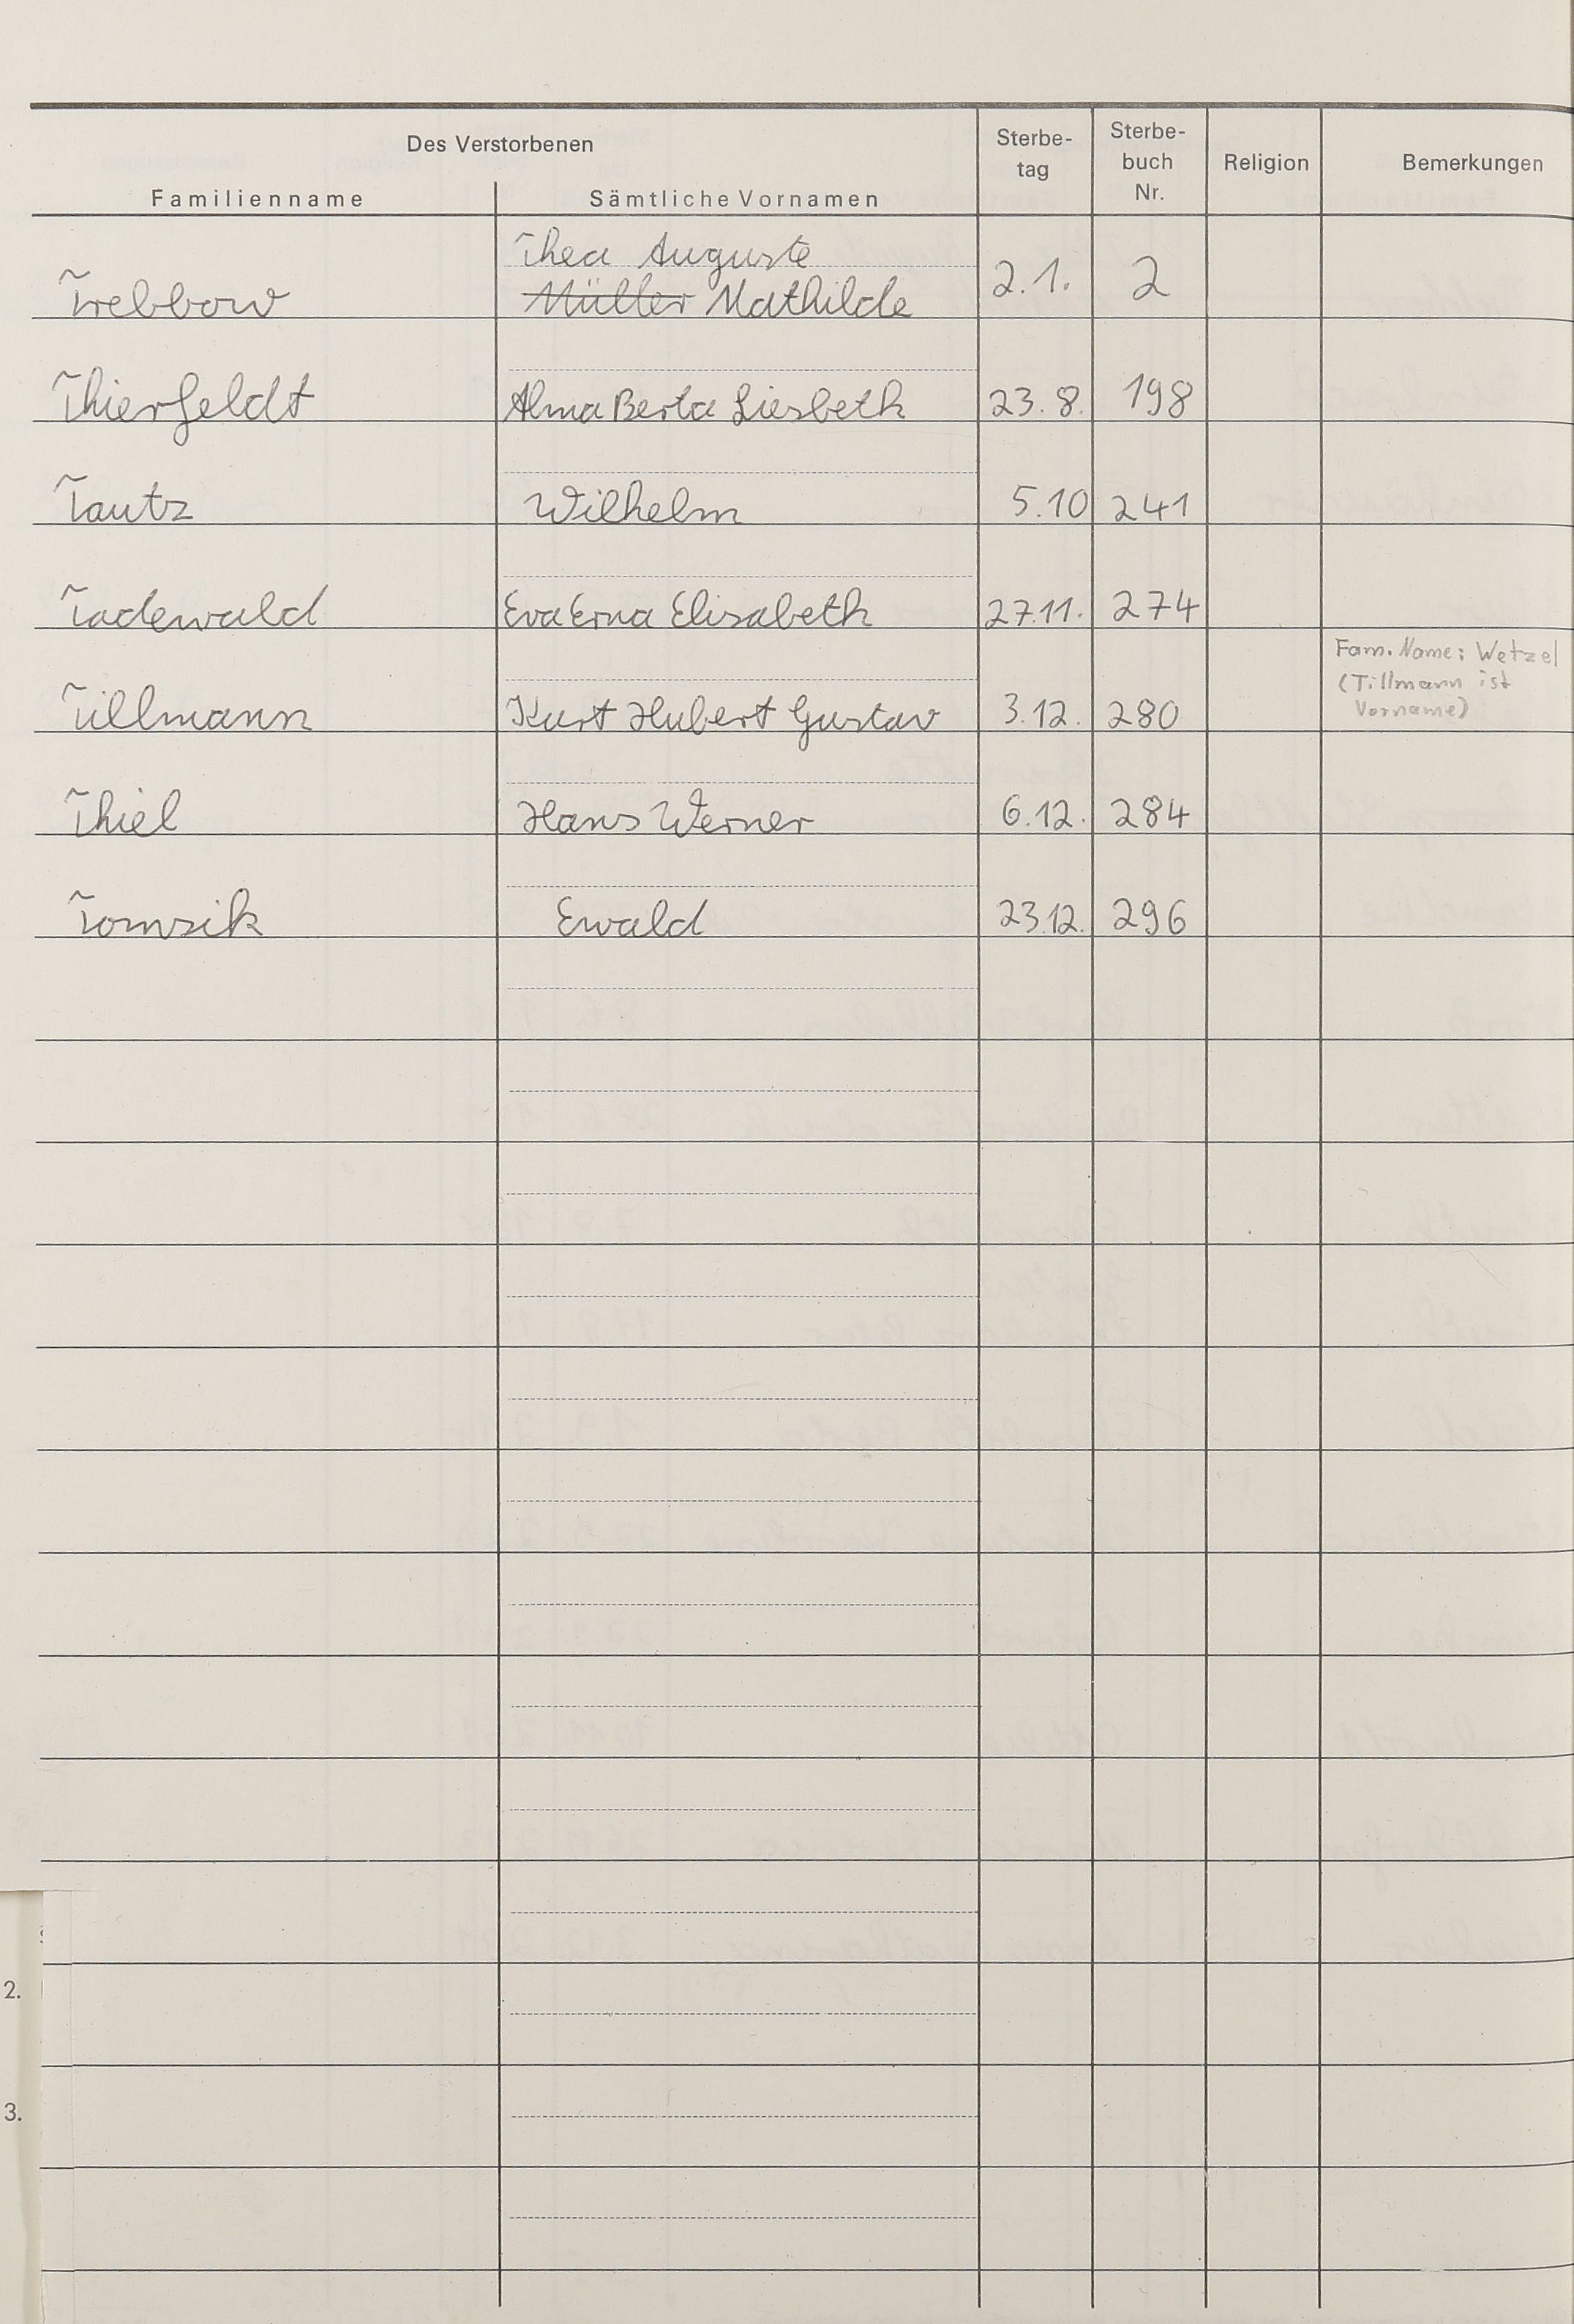 Des Verstorbenen
Familienname
Sämtliche Vornamen
Sterbe-
tag
Sterbe-
buch
Nr.
Religion
Bemerkungen
Thea Auguste
Trebbow Müller Mathilde 2.1. 2
Thierfeldt Alma Berta Liesbeth 23.8. 198
Tautz Wilhelm 5.10 241
Tadewald Eva Erna Elisabeth 27.11. 274
Fam. Name: Wetzel
(Tillmann ist
Vorname)
Tillmann Kurt Hubert Gustav 3.12. 280
Thiel Hans Werner 6.12. 284
Tomsik Ewald 23.12. 296
2.
3.